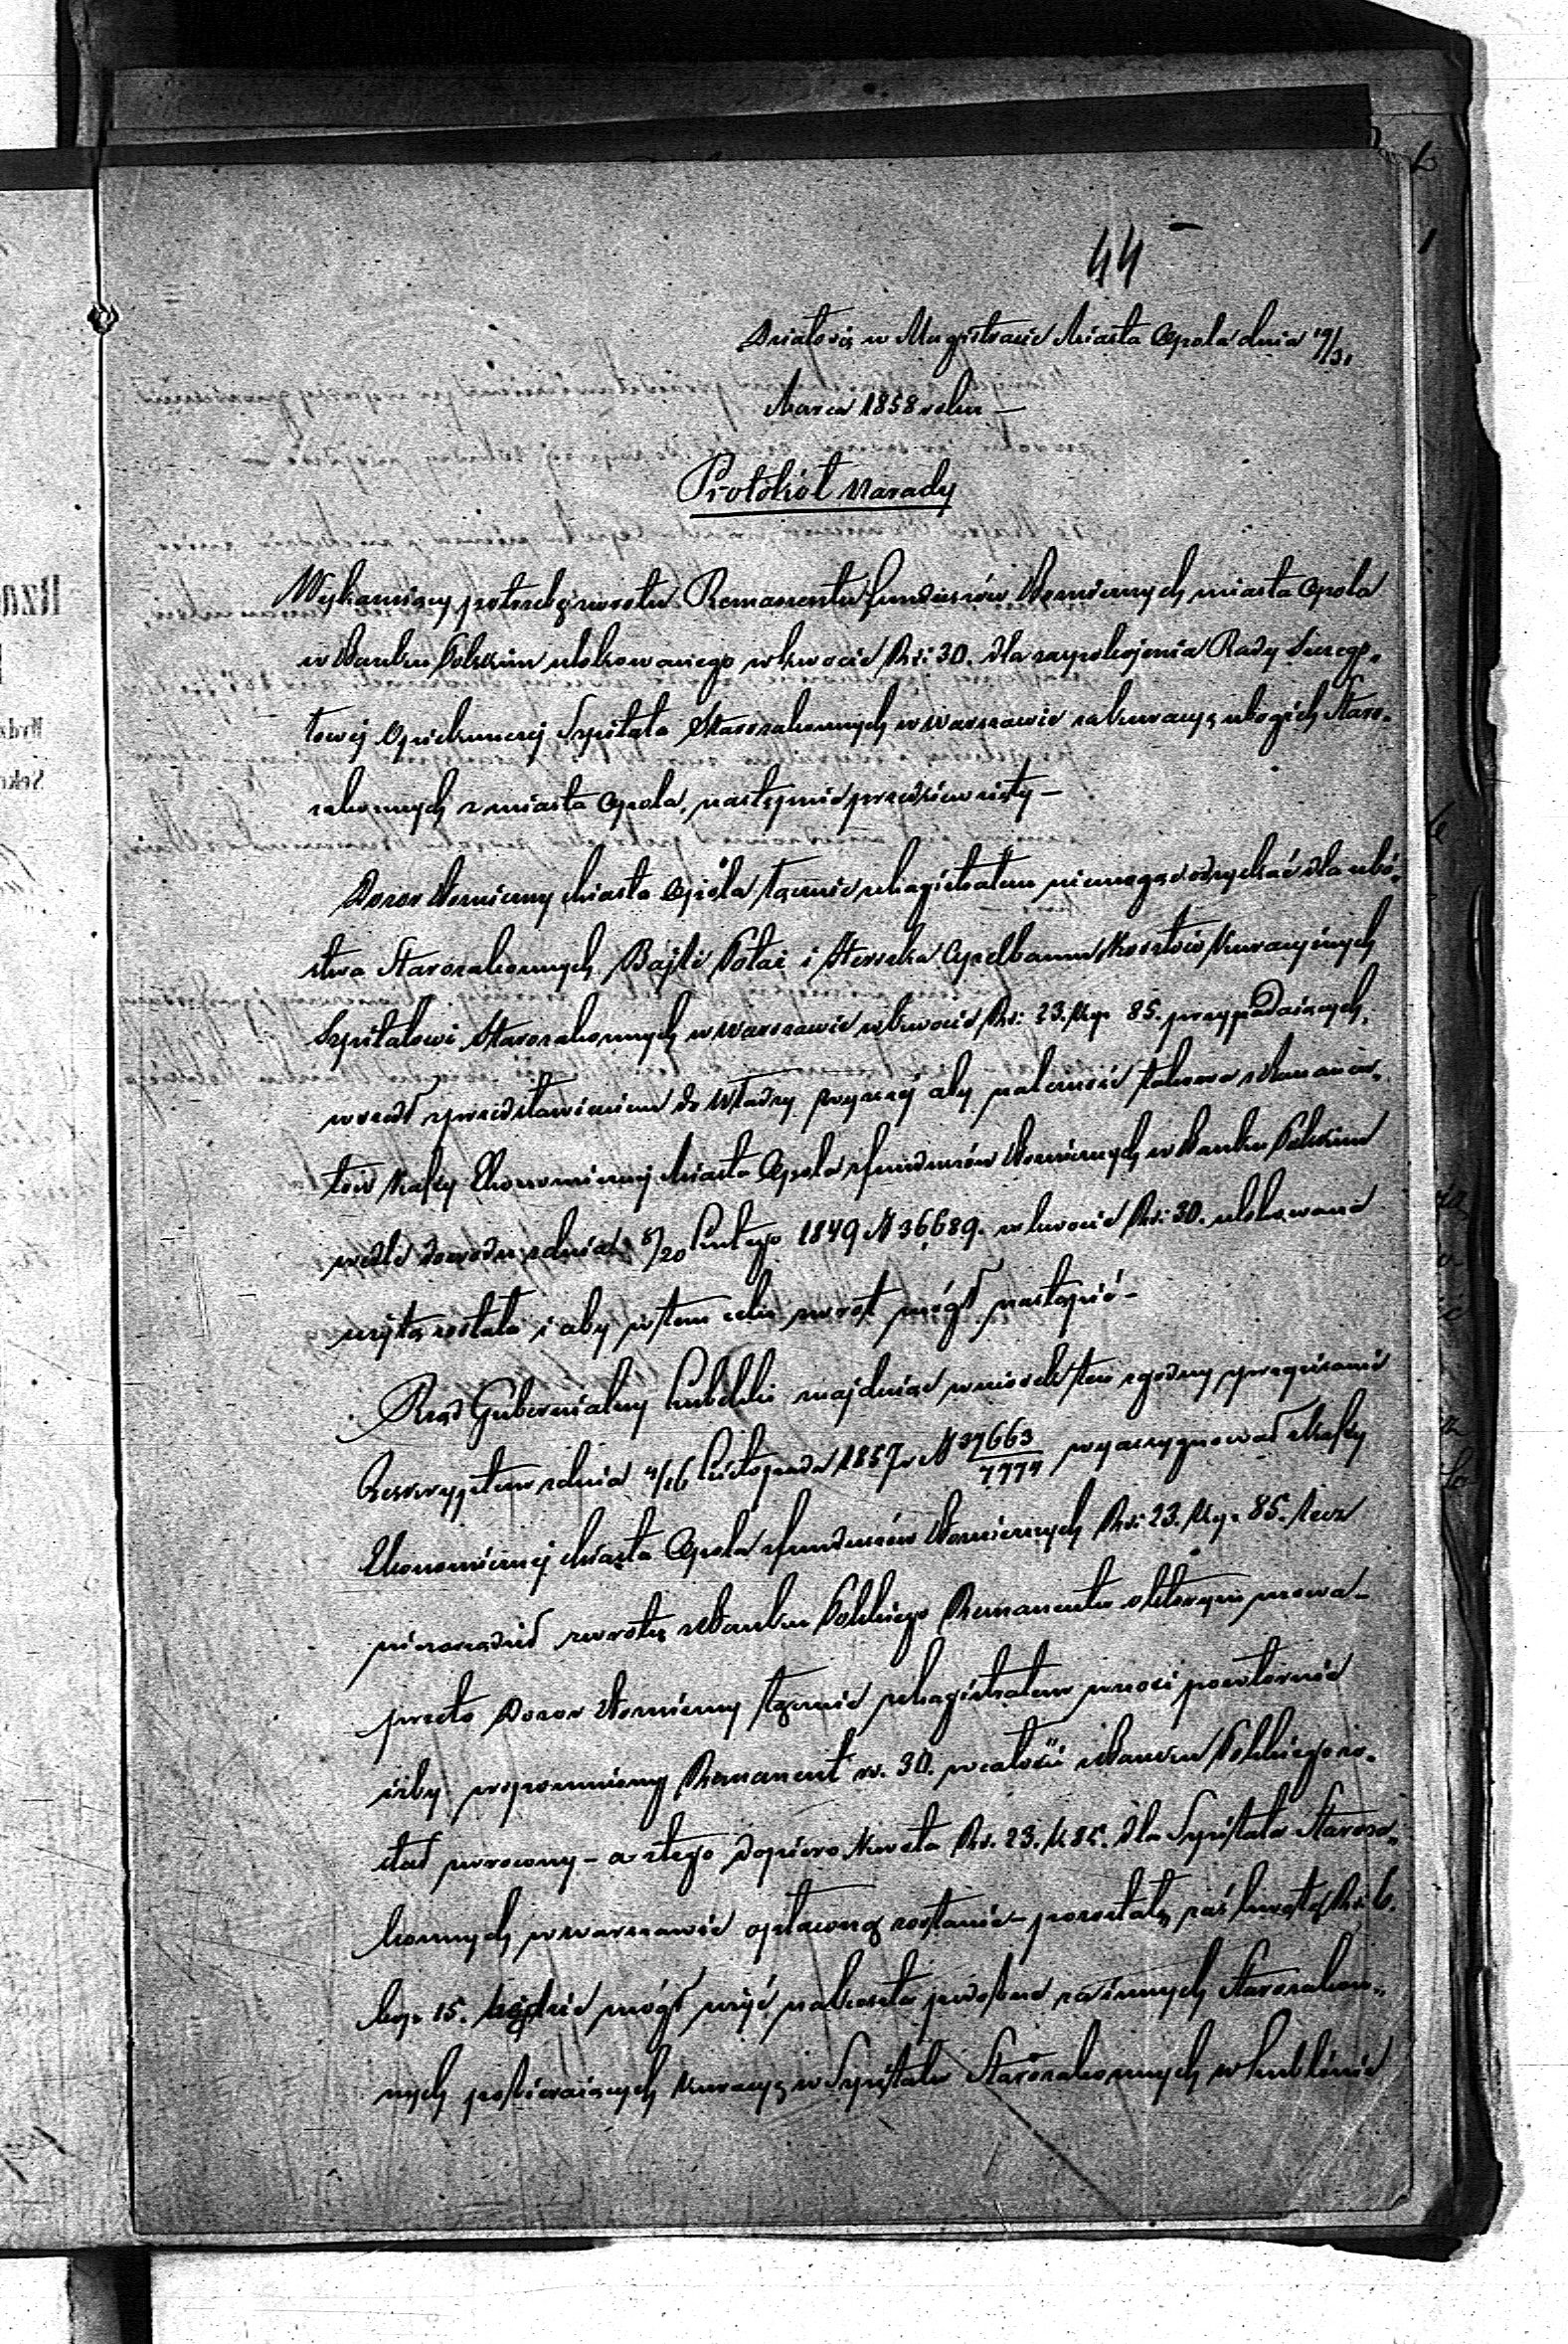 44
Działo się w Magistracie Miasta Opola dnia 19/31
Marca 1858 roku —
Protokół Narady
Wykazujący potrzebę zwrotu Remanentu funduszów Bożniczych miasta Opola
w Banku Polskim ulokowanego w kwocie Rs: 30. dla zaspokojenia Rady Szczegó„
łowej Opiekuńczej Szpitala Starozakonnych w Warszawie za kuracyą ubogich Staro„
zakonnych z miasta Opola, następnie przedsięwzięty —
Dozor Bożniczy Miasta Opola łącznie z Magistratem niemogąc odzyskać dla ubó„
stwa Starozakonnych Bajli Połać i Herszka Apelbaum Kosztów Kuracyjnych
Szpitalowi Starozakonnych w Warszawie w kwocie Rs: 23. Kop. 85. przypadaiących,
wszedł z przedstawieniem do Władzy wyższej aby należność takowa z Remanen„
tów Kassy Ekonomicznej Miasta Opola z funduszów Bożniczych w Banku Polskim
wedle dowodu z dnia 8/20 Lutego 1849 N 36689. w kwocie Rs: 30. ulokowana
użytą została i aby w tem celu zwrot mógł nastąpić —
Rząd Gubernialny Lubelski znajdując wniosek ten zgodny z przepisami
Reskryptem z dnia 4/16 Listopada 1857 r N 37663/7774 wyassygnował z Kassy
Ekonomicznej Miasta Opola z funduszów Bożniczych Rs: 23. Kop. 85. lecz
niezarządził zwrotu z Banku Polskiego Remanentu o którym mowa —
przeto Dozor Bożniczy łącznie z Magistratem wnosi powtórnie
iżby wspomniony Remanent rs. 30. w całości z Banku Polskiego zo„
stał zwrocony — a z tego dopiero Kwota Rs. 23. K 85. dla Szpitala Staroza„
konnych w Warszawie opłaconą zostanie — pozostałą zaś kwotę Rs. 6.
kop. 15. będzie mógł użyć na koszta podobne za innych Starozakon„
nych pobieraiących Kuracyą w Szpitalu Starozakonnych w Lublinie